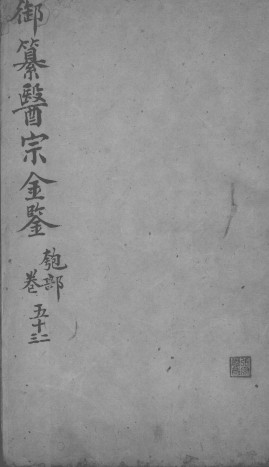 御纂醫宗金鑒
匏部
卷 五十三